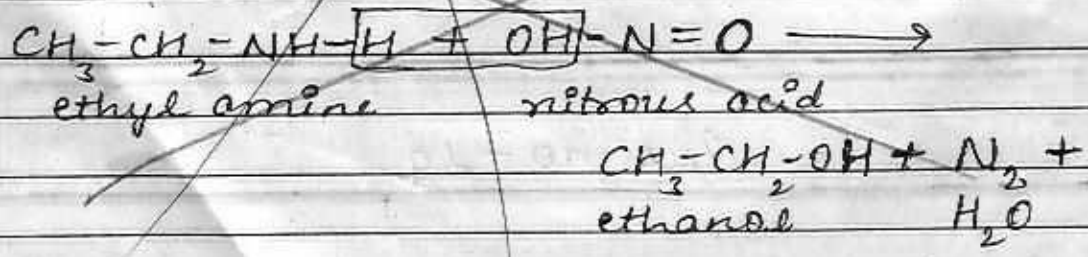 CH₃-CH₂-NH-H + OH-N=O ⟶
ethyl amine nitrous acid
CH₃-CH₂-OH + N₂ +
ethanol H₂O